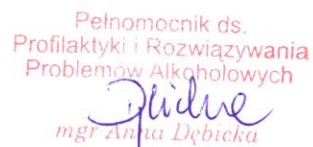 Pełnomocnik ds.
Profilaktyki i Rozwiązywania
Problemów Alkoholowych
mgr Anna Dębicka